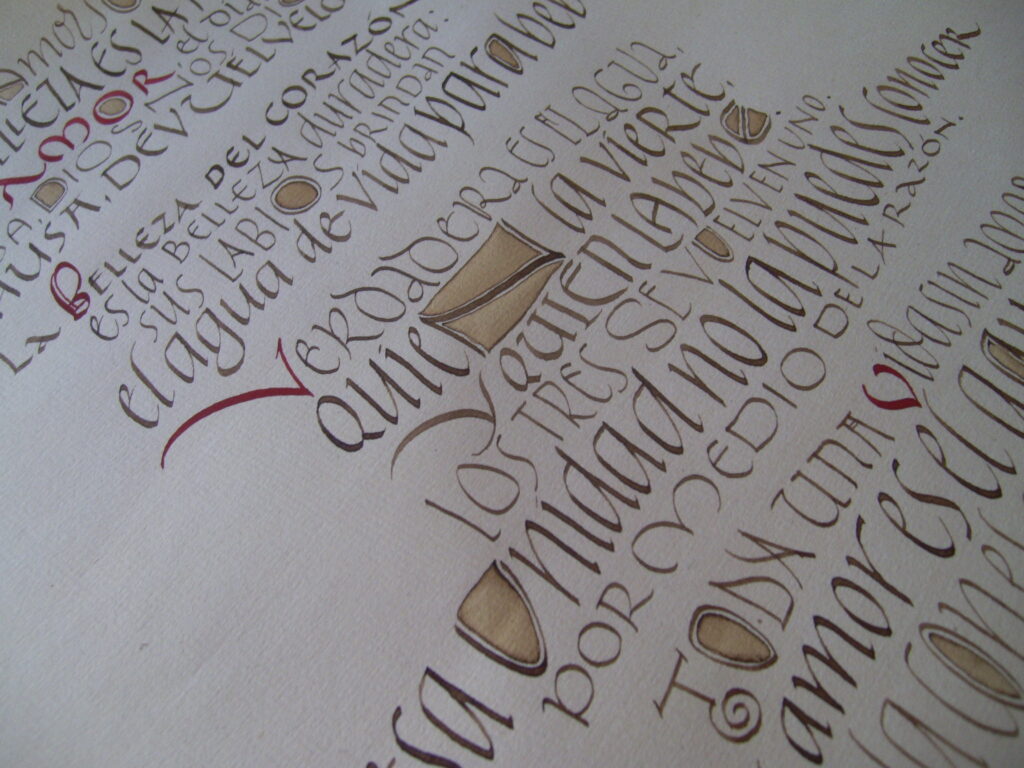 LLEZA ES LA
AMOR el
DIOS NOS
AUSA, DEVUELVELO
LA BELLEZA DEL CORAZÓN
es la BELLEZA duradera:
SUS LABIOS BRINDAN
el agua de vida para beber
VERDADERA ES EL AGUA,
QUIEN la vierte,
Y QUIEN LA bebe.
LOS TRES SE VUELVEN UNO.
sa Unidad no la puedes conocer
POR MEDIO DE LA RAZÓN.
TODA UNA Vida sin amor
amor es el